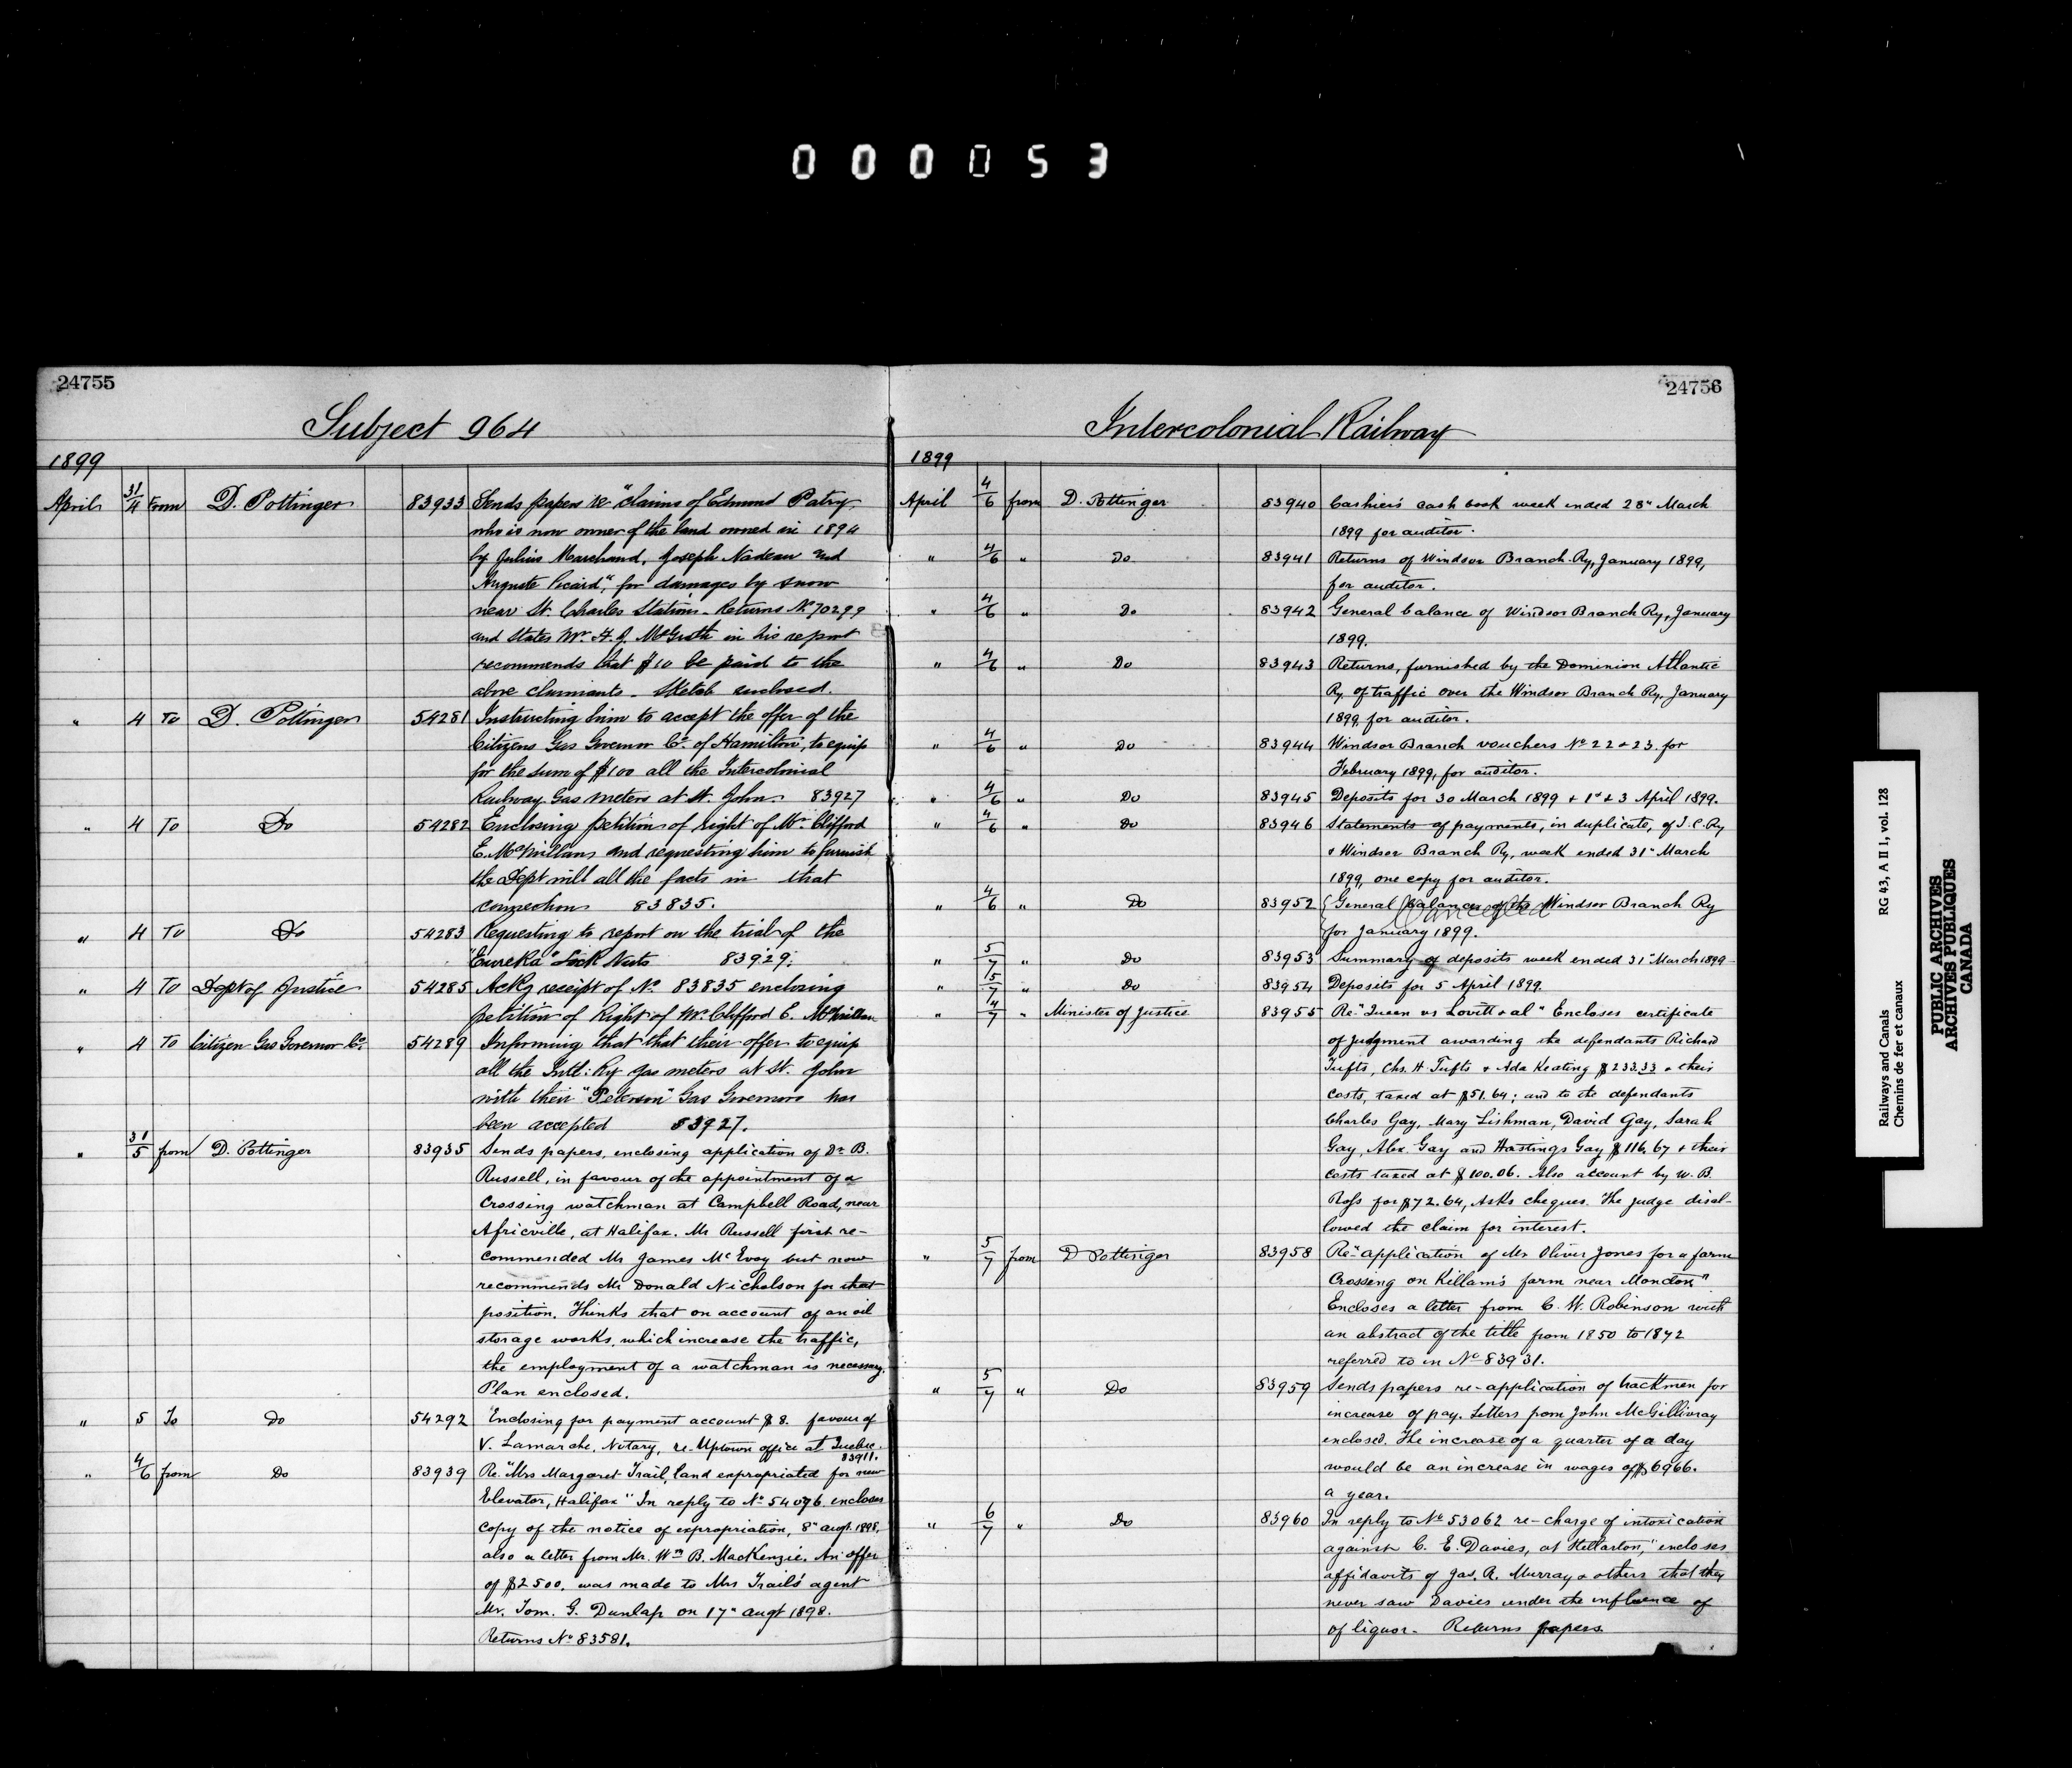 000053
24755
Subject 964
1899
April 31/4 From D. Pottinger 83933 Sends papers re "claims of Edmund Patry,
who is now owner of the land owned in 1894
by Julius Marchand, Joseph Nadeau and
Auguste Picard", for damages by snow
near St. Charles Station. Returns No 70299
and states Mr. H. J. McGrath in his report
recommends that $10 be paid to the
above claimants. Sketch enclosed.
" 4 To D. Pottinger 54281 Instructing him to accept the offer of the
Citizens Gas Governor Co. of Hamilton, to equip
for the sum of $100 all the Intercolonial
Railway Gas meters at St. John 83927
" 4 To Do 54282 Enclosing petition of right of Mr. Clifford
E. McMillan, and requesting him to furnish
the Dept will all the facts in that
connection 83835.
" 4 To Do 54283 Requesting to report on the trial of the
"Eureka" Lock Nuts 83929.
" 4 To Dept of Justice 54285 Ackg receipt of No. 83835 enclosing
petition of Right of Mr. Clifford E. McMillan
" 4 To Citizen Gas Governor Co. 54289 Informing that that their offer to equip
all the Intl: Ry gas meters at St. John
with their "Peterson" Gas Governors has
been accepted 83927.
" 31/5 from D. Pottinger 83935 Sends papers, enclosing application of Dr. B.
Russell, in favour of the appointment of a
crossing watchman at Campbell Road, near
Africville, at Halifax. Mr Russell first re-
commended Mr James McEvoy but now
recommends Mr Donald Nicholson for that
position. Thinks that on account of an oil
storage works, which increase the traffic,
the employment of a watchman is necessary.
Plan enclosed.
" 5 To Do 54292 Enclosing for payment account $8. favour of
V. Lamarche, Notary, re-Uptown office at Quebec.
83911.
" 4/6 from Do 83939 Re. "Mrs Margaret Trail, land expropriated for new
Elevator, Halifax" In reply to No 54096. encloses
copy of the notice of expropriation, 8" augt. 1898,
also a letter from Mr. Wm B. MacKenzie. An offer
of $2500. was made to Mrs Trail's agent
Mr. Tom. G. Dunlap on 17" augt 1898.
Returns No 83581.
24756
Intercolonial Railway
1899
April 4/6 from D. Pottinger 83940 Cashier's cash book week ended 28" March
1899 for auditor.
" 4/6 " Do 83941 Returns of Windsor Branch Ry, January 1899,
for auditor.
" 4/6 " Do 83942 General balance of Windsor Branch Ry, January
1899.
" 4/6 " Do 83943 Returns, furnished by the Dominion Atlantic
Ry. of traffic over the Windsor Branch Ry, January
1899, for auditor.
" 4/6 " Do 83944 Windsor Branch vouchers No 22 & 23. for
February 1899, for auditor.
" 4/6 " Do 83945 Deposits for 30 March 1899 & 1st & 3 April 1899.
" 4/6 " Do 83946 Statements of payments, in duplicate, of I.C. Ry
& Windsor Branch Ry, week ended 31" March
1899, one copy for auditor.
" 4/6 " Do 83952 General balance of the Windsor Branch Ry
Cancelled
for January 1899.
" 5/7 " Do 83953 Summary of deposits week ended 31" March 1899-
" 5/7 " Do 83954 Deposits for 5 April 1899.
" 4/7 " Minister of Justice 83955 Re. "Queen vs Lovitt & al" Encloses certificate
of judgment awarding the defendants Richard
Tufts, Chs. H. Tufts & Ada Keating $233.33 & their
costs, taxed at $51.64; and to the defendants
Charles Gay, Mary Lishman, David Gay, Sarah
Gay, Alex. Gay and Hastings Gay $116.67 & their
costs taxed at $100.06. Also account by W. B.
Ross for $72.64, Asks cheques. The judge disal-
lowed the claim for interest.
" 5/7 from D Pottinger 83958 Re-"application of Mr Oliver Jones for a farm
crossing on Killam's farm near Moncton"
Encloses a letter from C. W. Robinson with
an abstract of the title from 1850 to 1872
referred to in No 83931.
" 5/7 " Do 83959 Sends papers re-application of trackmen for
increase of pay. Letters from John McGillivray
enclosed. The increase of a quarter of a day
would be an increase in wages of $6966.
a year.
" 6/7 " Do 83960 In reply to No 53062 re-charge of intoxication
against C. E. Davies, at Stellarton," encloses
affidavits of Jas. A. Murray & others that they
never saw Davies under the influence of
of liquor. Returns papers
Railways and Canals RG 43, A II 1, vol. 128
Chemins de fer et canaux
PUBLIC ARCHIVES
ARCHIVES PUBLIQUES
CANADA